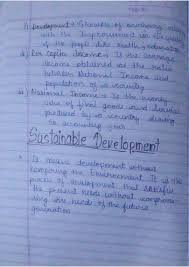 1) Development → Is of
with the Improvement in
of the people like health, education
2) Per Capita Income → Is the average
income obtained as the ratio
between National Income and
population of a country
3) National Income → Is the money
value of final goods and services
produced by a country during
an accounting year
Sustainable Development
Is means development without
the Environment. It is the
process of development that satisfies
the present needs without
the needs of the future
generation